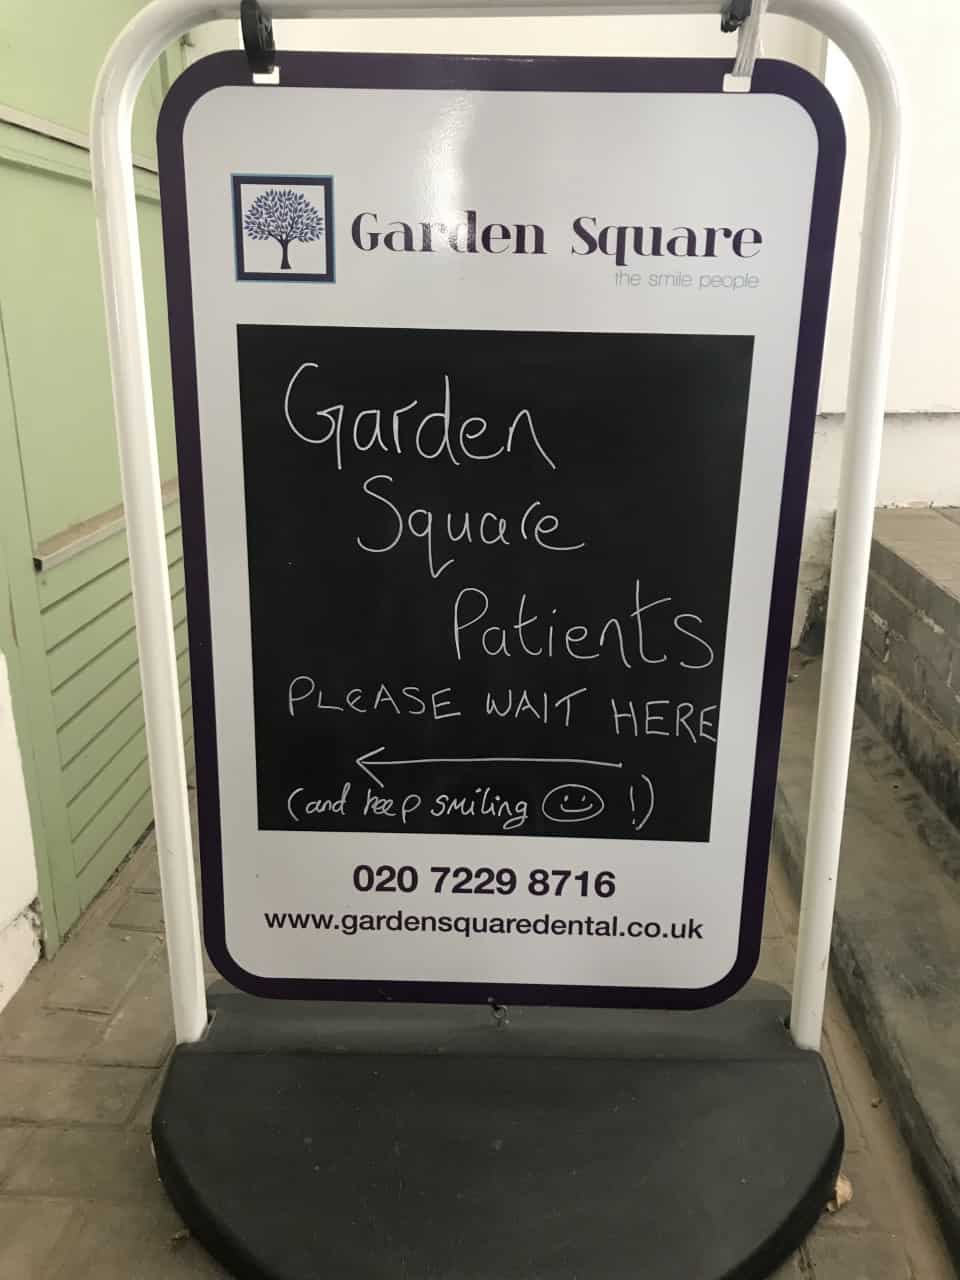 Garden Square
the smile people
Garden
Square
Patients
PLEASE WAIT HERE
(and keep smiling !)
020 7229 8716
www.gardensquaredental.co.uk